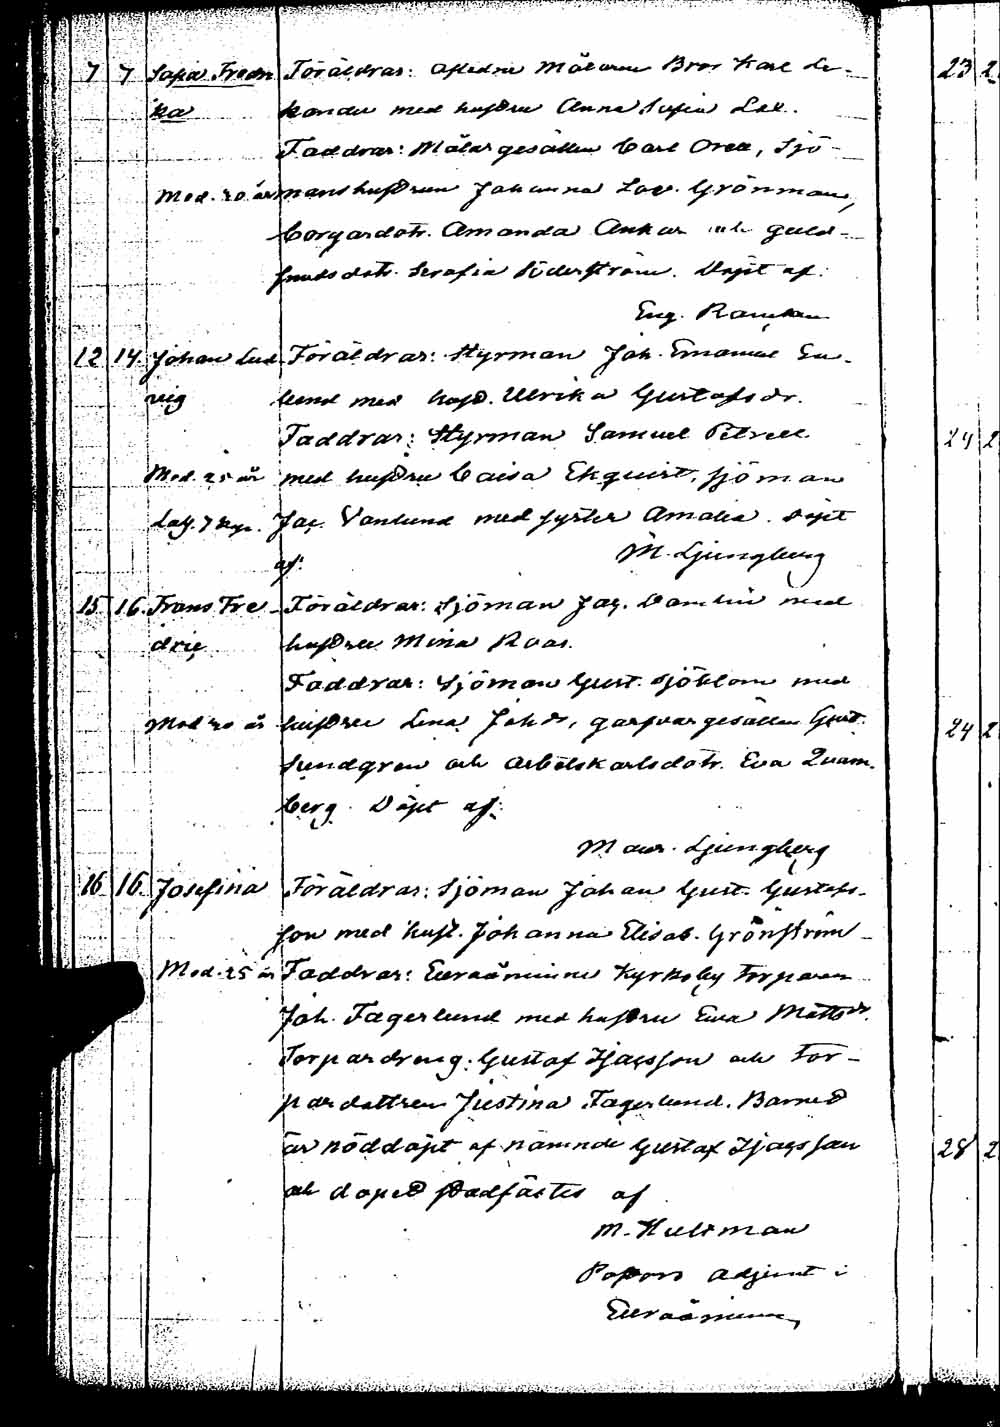 7 7 Sofia Fredri Föräldrar: Afledne Målaren Bror Karl Le-
ka kander med hustru Anna Sofia Lee.
Faddrar: Målargesällen Carl Orell, Sjö-
Mod. 20 år manshustrun Johanna Lov. Grönman,
borgardotr. Amanda Ankar och guld-
smedsdotr. Serafia Söderström. Döpt af:
Eug. Ramsten
12 14. Johan Lud- Föräldrar: Styrman Joh. Emanuel En-
vig lund med hust. Ulrika Gustafsdr.
Faddrar: Styrman Samuel Petrell
Mod. 25 år med hustru Caisa Ekquist, sjöman
Jac. Vanlund med syster Amalia. Döpt
af: M. Ljungberg
15 16. Frans Fre- Föräldrar: Sjöman Jac. Damlin med
dric hustru Mina Roos.
Faddrar: Sjöman Gust. Sjöblom med
Mod 20 år hustru Lena Johdr, garfvargesällen Gust.
Sundgren och arbetskarlsdotr. Eva Quam-
berg. Döpt af:
Maur. Ljungberg
16 16. Josefina Föräldrar: Sjöman Johan Gust. Gustafs-
son med hust. Johanna Elisab. Grönström
Mod. 25 år Faddrar: Euraåminne Kyrkoby Torparen
Joh. Fagerlund med hustru Eva Mattsdr.
Torpardreng: Gustaf Isacsson och Tor-
pardottren Justina Fagerlund. Barnet
är nöddöpt af nämnde Gustaf Isacsson
och dopet stadfästes af
M. Hultman
Pastors adjunct i
Euraåminne
23 2
24 2
24 2
28 2